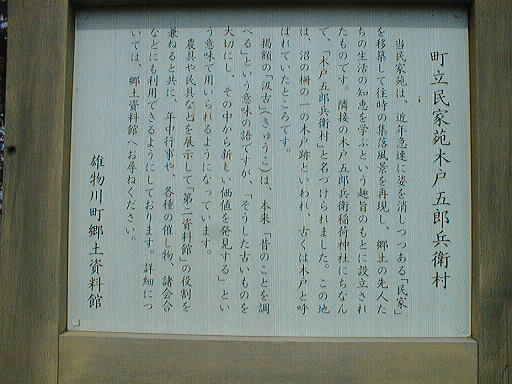 町立民家苑木戸五郎兵衛村
当民家苑は、近年急速に姿を消しつつある「民家」
を移築して往時の集落風景を再現し、郷土の先人た
ちの生活の知恵を学ぶという趣旨のもとに設立され
たものです。隣接の木戸五郎兵衛稲荷神社にちなん
で、「木戸五郎兵衛村」と名づけられました。この地
は、沼の柵の一の木戸跡といわれ、古くは木戸と呼
ばれていたところです。
掲額の「汲古」(きゅうこ)は、本来「昔のことを調
べる」という意味の語ですが、「そうした古いものを
大切にし、その中から新しい価値を発見する」とい
う意味で用いられるようになっています。
農具や民具などを展示して「第二資料館」の役割を
兼ねると共に、年中行事や、各種の催し物、諸会合
などにも利用できるようにしております。詳細につ
いては、郷土資料館へお尋ねください。
雄物川町郷土資料館